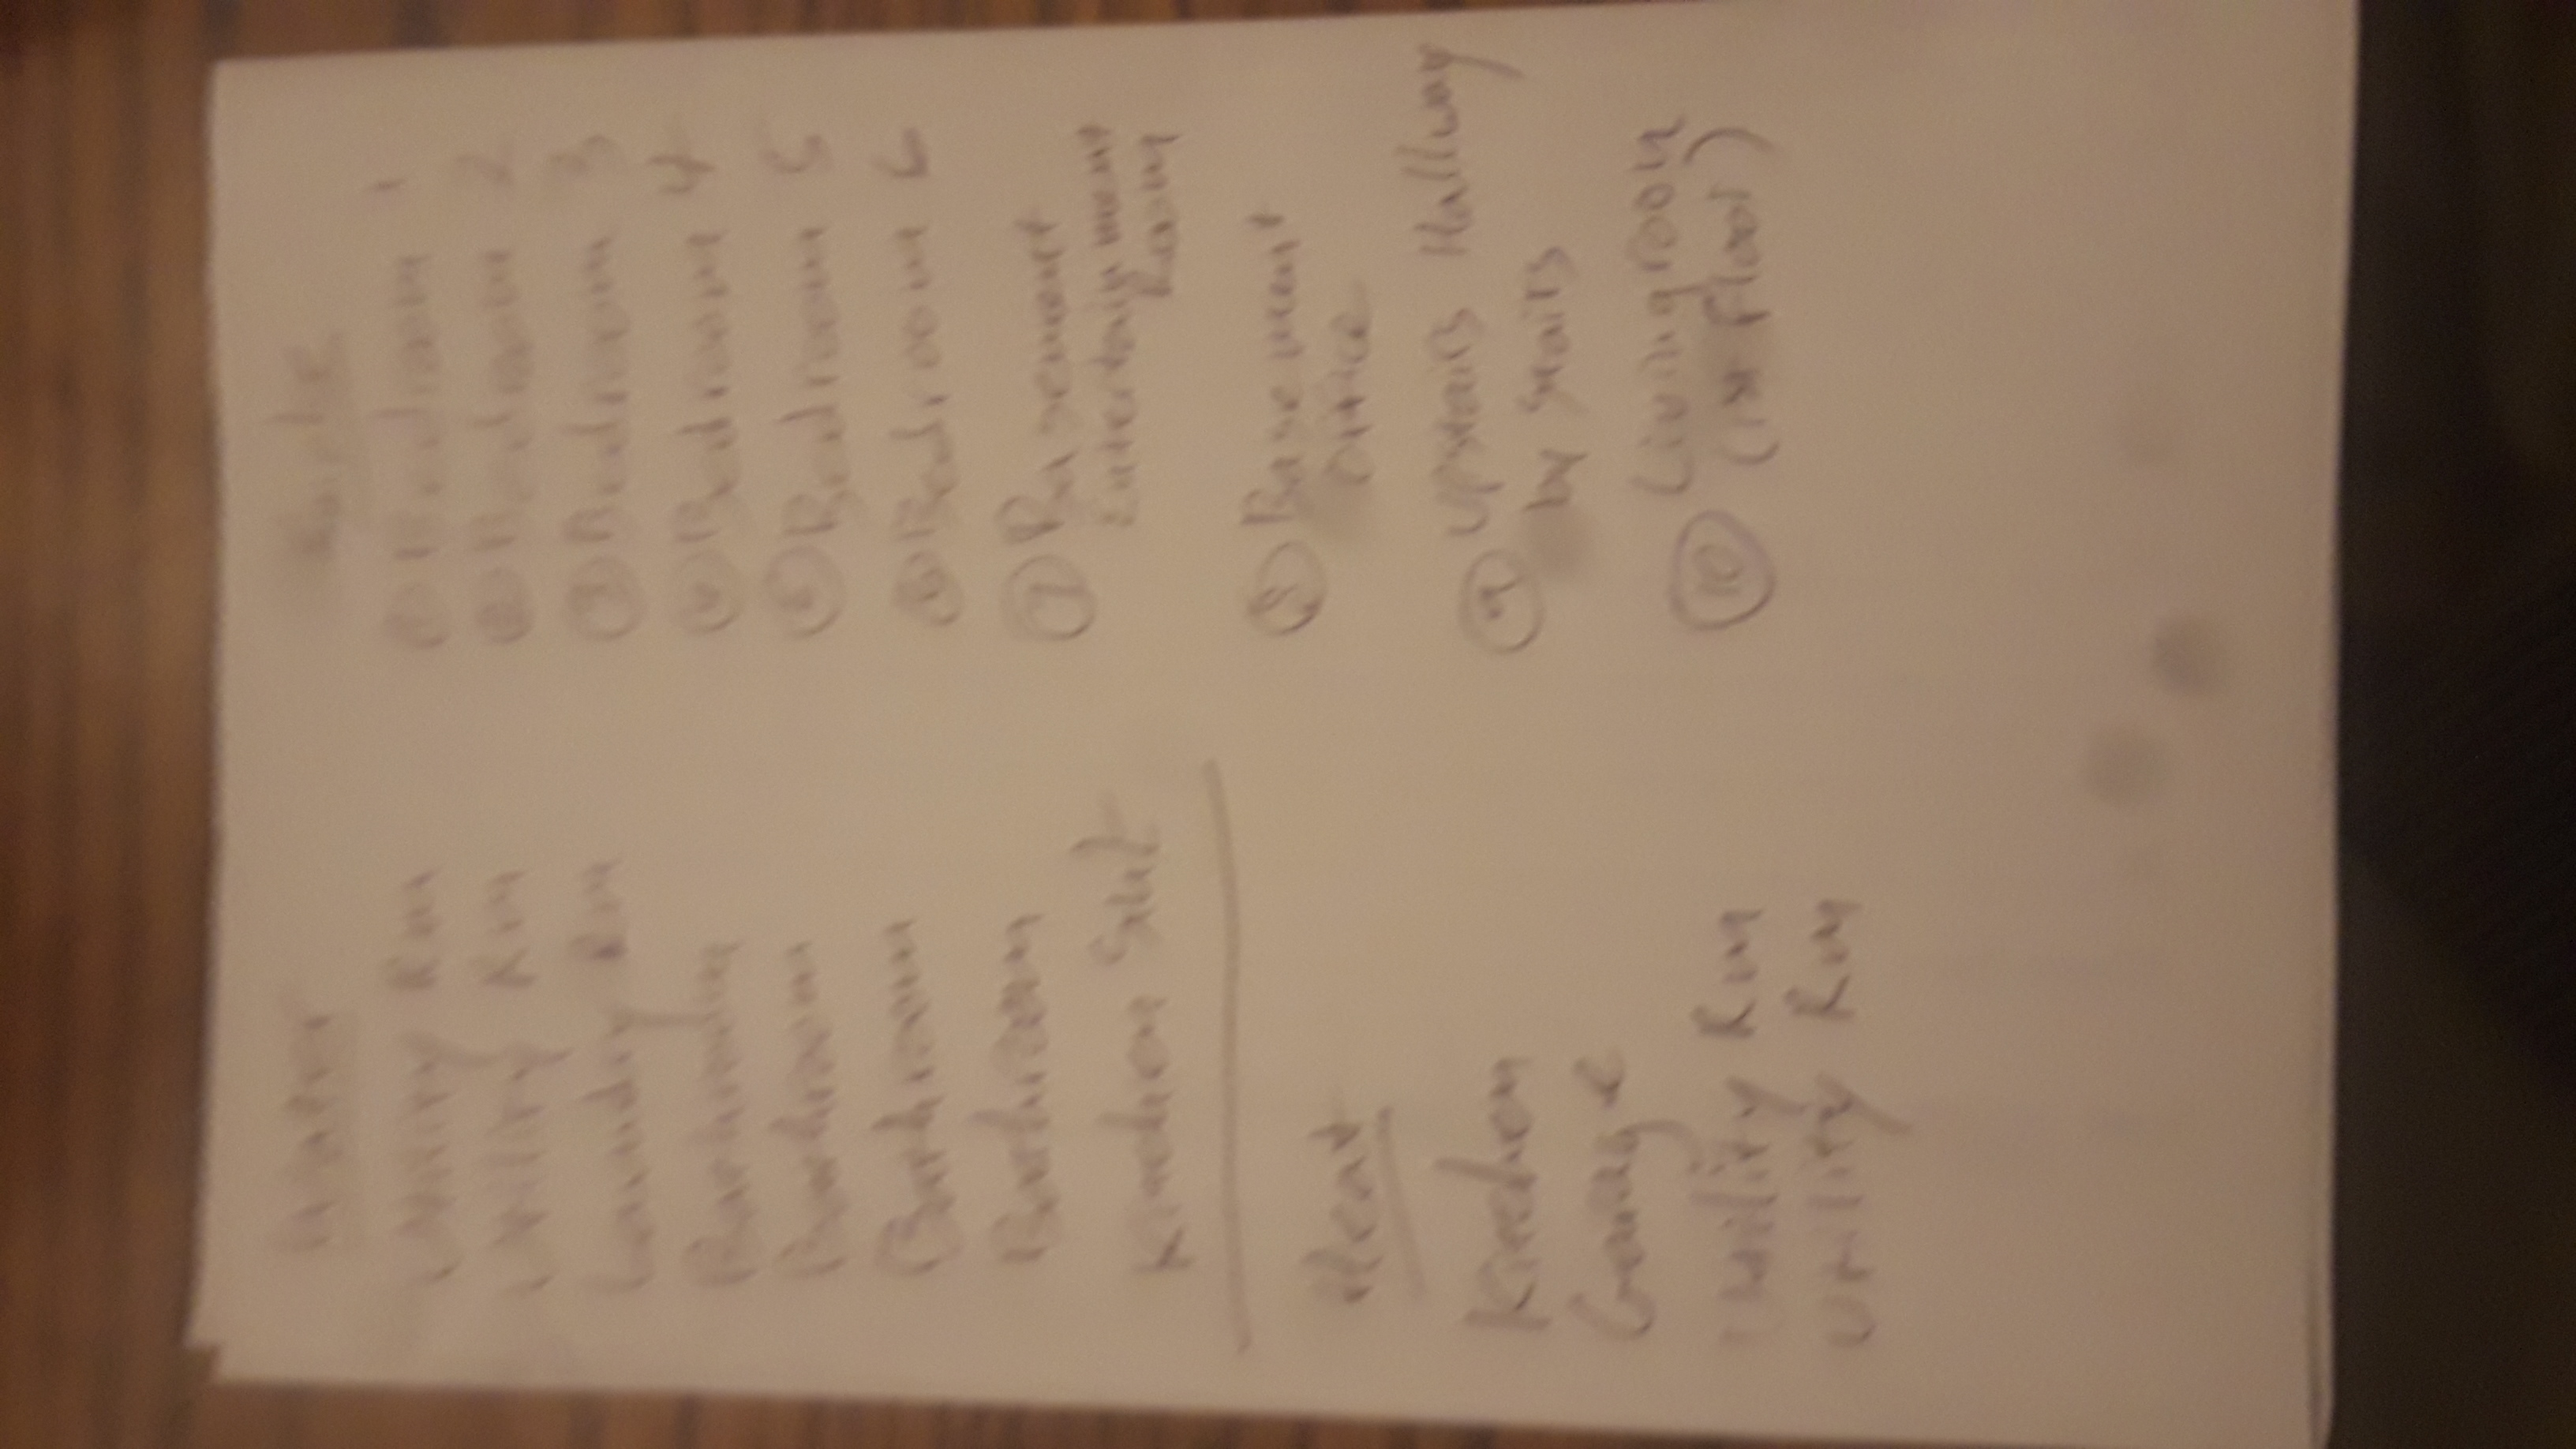 Water
Utility Rm
Utility Rm
Laundry Rm
Bathroom
Bathroom
Bathroom
Bathroom
Kitchen Sink
Heat
Kitchen
Garage
Utility Rm
Utility Rm
① Bedroom 1
② Bedroom 2
③ Bedroom 3
④ Bedroom 4
⑤ Bedroom 5
⑥ Bedroom 6
⑦ Basement
Entertainment
Room
⑧ Basement
Office
⑨ Upstairs Hallway
by stairs
⑩ Living room
(1st Floor)